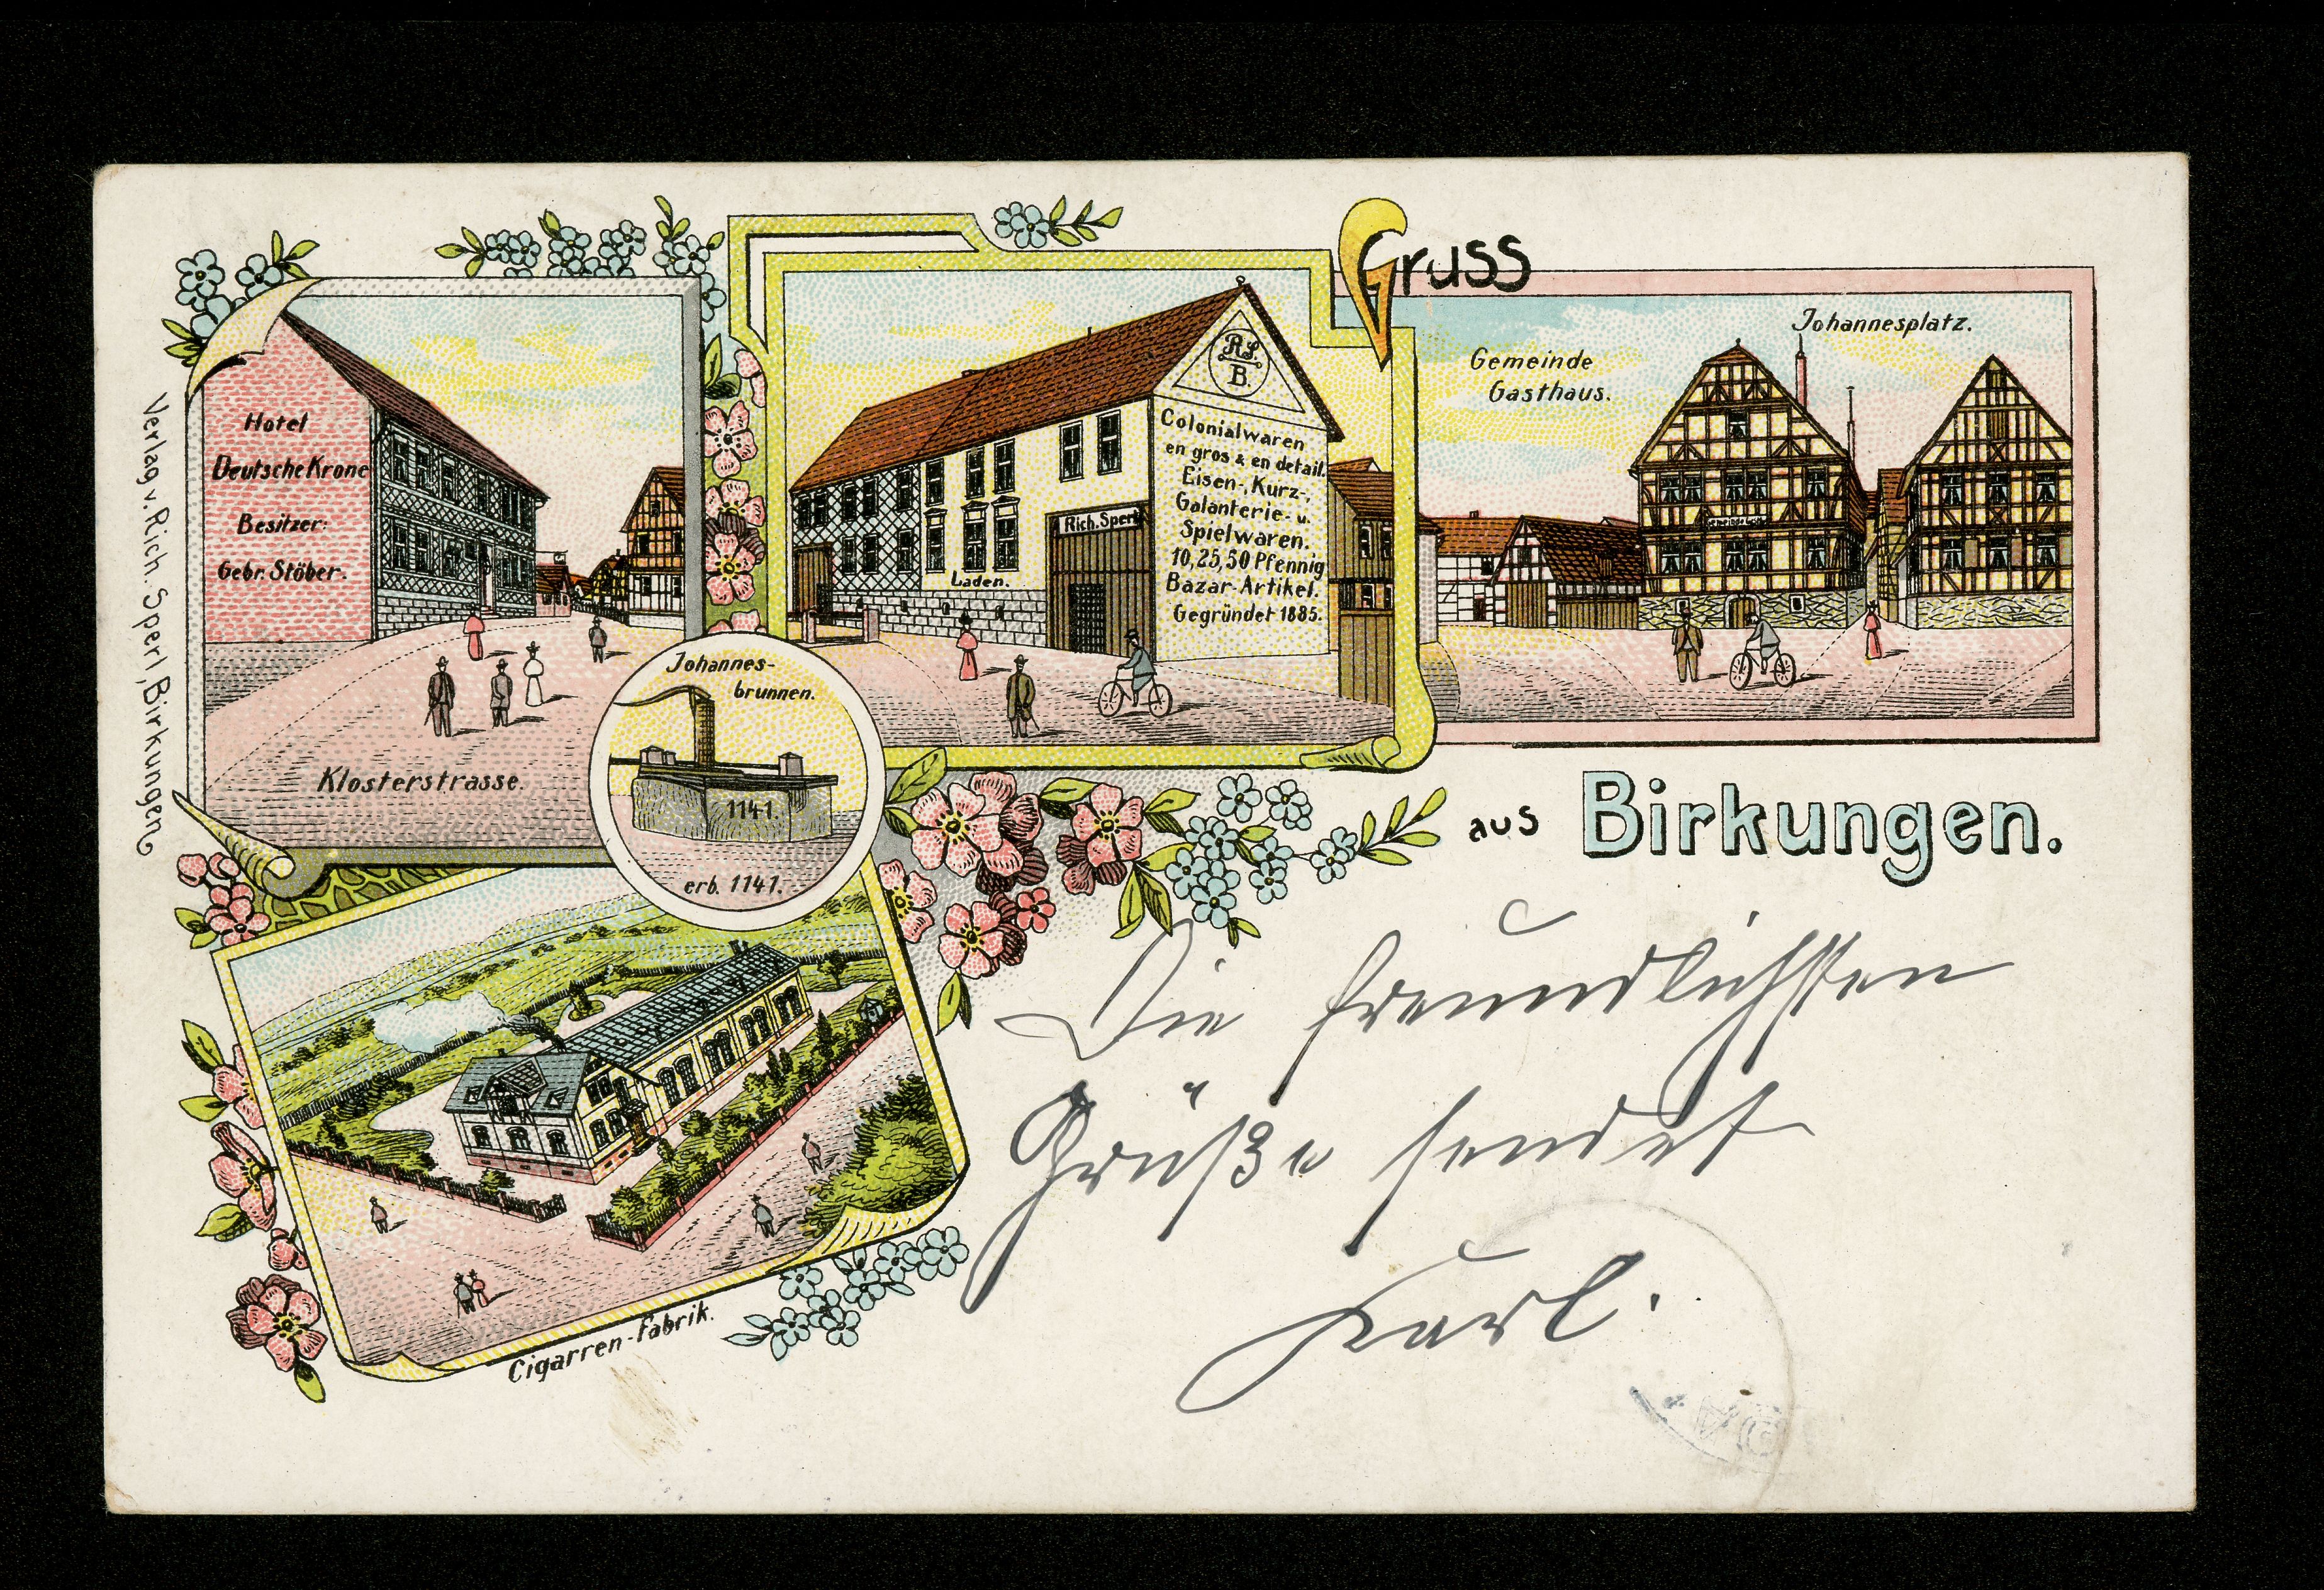 Gruss
aus Birkungen.
Verlag v. Rich. Sperl, Birkungen
Hotel
Deutsche Krone
Besitzer:
Gebr. Stöber.
Klosterstrasse.
Johannes-
brunnen.
1141.
erb. 1141.
R.S.
B.
Colonialwaren
en gros & en detail.
Eisen-, Kurz-,
Galanterie- u.
Spielwaren.
10, 25, 50 Pfennig
Bazar-Artikel.
Gegründet 1885.
Rich. Sperl
Laden.
Gemeinde
Gasthaus.
Johannesplatz.
Cigarren-Fabrik.
Die freundlichsten
Grüße sendet
Karl.